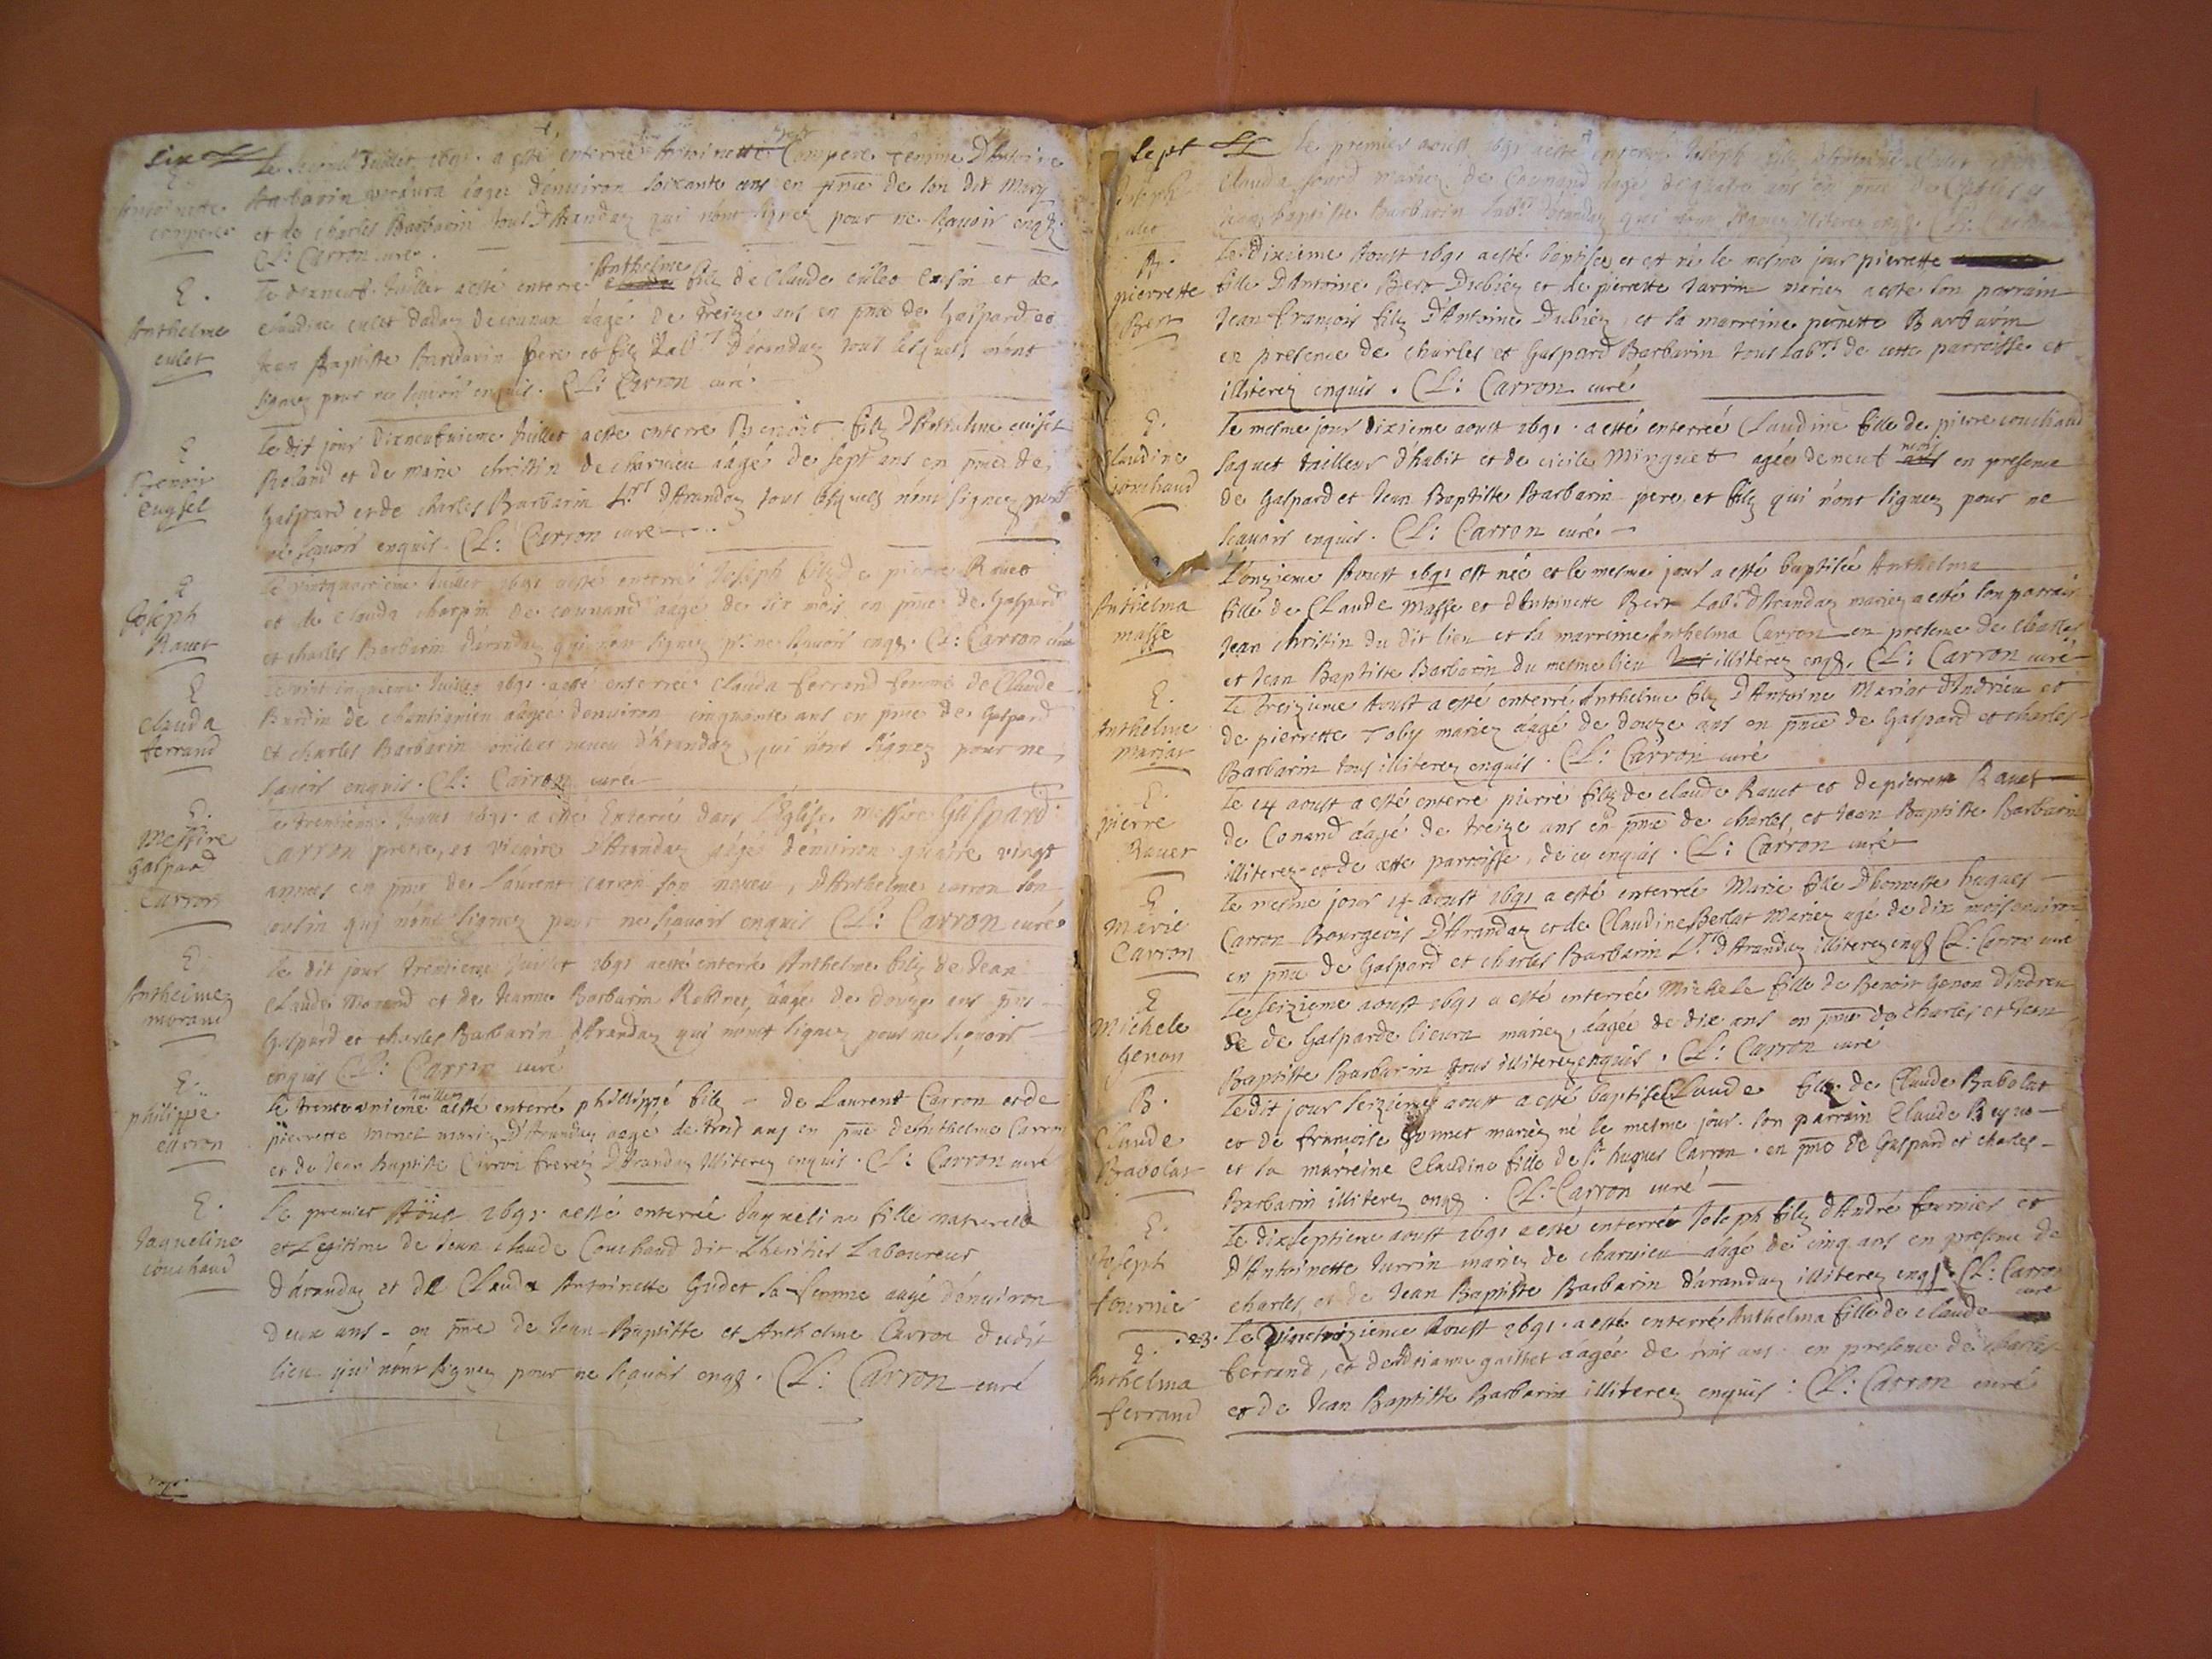 six
E
Antoinette
compere
Le second Juillet 1691. a esté enterrée Antoinette Compere femme D'Antoine
Barbarin aagee d'environ soixante ans en pnce de son dit Mary
et de charles Barbarin tous D'Arandaz qui n'ont signez pour ne sçavoir enqs.
CL: Carron curé.
E.
Anthelme
culet
Le dixneuf Juillet a esté enterré Anthelme filz de Claude culet et de
claudine culet aagé de treize ans en pnce de Gaspard et
Jean Baptiste Barbarin pere et filz Lab.rs d'arandaz tous lesquels n'ont
signez pour ne sçavoir enquis. CL: Carron curé.
E
Benoit
cuysset
Le dit jour dixneufvieme Juillet a esté enterré Benoit filz D'Anthelme cuiset
Roland et de marie christin de charvieu aagé de sept ans en pnce de
Gaspard et de charles Barbarin L.rs d'Arandaz tous lesquels n'ont signez pour
ne sçavoir enquis. CL: Carron curé
E
Joseph
Ravet
Le vintquatrieme Juillet 1691 a esté enterré Joseph filz de pierre Ravet
et de clauda charpin de counand aagé de six mois en pnce de Gaspard
et charles Barbarin d'arandaz qui n'ont signez pr. ne sçavoir enqs. CL: Carron curé
E
clauda
ferrand
Le vint cinquieme Juillet 1691 a esté enterrée clauda ferrand femme de Claude
Burdin de chantignieu aagee d'environ cinquante ans en pnce de Gaspard
et charles Barbarin oncle et neveu d'Arandaz qui n'ont signez pour ne
sçavoir enquis. CL: Carron curé
E.
Messire
Gaspard
Carron
Le trentieme 1691. a esté Enterré dans l'Eglise messire Gaspard
Carron pretre, et vicaire D'Arandaz aagé d'environ quatre vingt
annees en pnce de Laurent carron son neveu, d'Anthelme carron son
cousin qui n'ont signez pour ne sçavoir enquis CL: Carron curé.
E
Anthelme
morand
Le dit jour trentieme Juillet 1691 a esté enterré Anthelme filz de Jean
Claude Morand et de Jeanne Barbarin Robinet aagé de douze ans pns
Gaspard et charles Barbarin d'Arandaz qui n'ont signez pour ne sçavoir
enquis CL: Carron curé
E.
philippe
carron
Le trente unieme Juillet a esté enterré phillippe filz de Laurent Carron et de
pierrette monet mariez D'Arandaz aagé de trois ans en pnce d'Anthelme Carron
et de Jean Baptiste Carron freres D'Arandaz illiterez enquis. CL: Carron curé
E.
Jaqueline
couchaud
Le premier Aoust 1691. a esté enterrée Jaqueline fille naturelle
et Legitime de Jean claude Couchaud dit Lheritier Laboureur
d'arandaz et de Clauda Antoinette Gudet sa femme aagé d'environ
deux ans - en pnce de Jean Baptiste et Anthelme Carron dudit
lieu qui n'ont signez pour ne sçavoir enqs. CL: Carron curé
sept
Joseph
culet
Le premier aoust 1691 a esté enterré Joseph filz d'Antoine Culet et de
Clauda mariez de Counand aagé de quatre ans en pnce de Charles et
Jean baptiste Barbarin lab.rs d'arandaz illiterez enqs. CL: Carron
B.
pierrette
Bert
Le dixieme Aoust 1691 a esté baptisée et est née le mesme jour pierrette
fille D'Antoine Bert Dubiez et de pierrette Jarrin mariez a esté son parrain
Jean François filz D'Antoine Dubiez, et sa marreine pernette Barbarin
en presence de charles et Gaspard Barbarin tous lab.rs de cette parroisse et
illiterez enquis. CL: Carron curé
E.
Claudine
couchaud
Le mesme jour dixieme aoust 1691. a esté enterrée Claudine fille de pierre couchaud
Jaquet tailleur d'habit et de cicile minguet agée de neuf mois en presence
de Gaspard et Jean Baptiste Barbarin pere, et filz qui n'ont signez pour ne
sçavoir enquis. CL: Carron curé
B.
Anthelma
masse
L'onzieme Aoust 1691 est née et le mesme jour a esté baptisée Anthelma
fille de Claude masse et d'Antoinette Bert lab.r d'Arandaz mariez a esté son parrain
Jean christin du dit lieu et sa marreine Anthelma Carron en presence de charles
et Jean Baptiste Barbarin du mesme lieu illiterez enqs. CL: Carron curé
E.
Anthelme
mariat
Le treizieme Aoust a esté enterré Anthelme filz D'Antoine Mariat d'Andrieu et
de pierrette Toby mariez aagé de douze ans en pnce de Gaspard et charles
Barbarin tous illiterez enquis. CL: Carron curé
E.
pierre
Ravet
Le 14 aoust a esté enterré pierre filz de claude Ravet et de pierrette Ravet
de Conand aagé de treize ans en pnce de charles, et Jean Baptiste Barbarin
illiterez et de cette parroisse, de ce enquis. CL: Carron curé
E
Marie
Carron
Le mesme jour 14 aoust 1691 a esté enterrée Marie fille D'honneste hugues
Carron Bourgeois D'Arandaz et de Claudine Berlat mariez agé de dix mois environ
en pnce de Gaspard et charles Barbarin L.rs d'Arandaz illiterez enqs CL: Carron curé
E
Michele
Genon
Le seizieme aoust 1691 a esté enterrée Michele fille de Benoit Genon d'Andrieu
et de Gasparde lieura mariez, aagée de dix ans en pnce de charles et Jean
Baptiste Barbarin tous illiterez enquis. CL: Carron curé
B.
Claude
Babolat
Le dit jour seizieme aoust a esté baptisé Claude filz de Claude Babolat
et de francoise bonnet mariez né le mesme jour. son parrain Claude Beyno
et sa marreine Claudine fille de sr. hugues Carron. en pnce de Gaspard et charles
Barbarin illiterez enqs. CL: Carron curé
E.
Joseph
fournier
Le dixseptieme aoust 1691 a esté enterré Joseph filz d'André fournier et
d'Antoinette Jarrin mariez de charvieu aagé de cinq ans en presence de
charles, et de Jean Baptiste Barbarin d'arandaz illiterez enqs. CL: Carron
curé
.23.
E.
Anthelma
ferrand
Le Aoust 1691. a esté enterrée Anthelma fille de claude
ferrand, et d'Andrianne gaillet aagée de trois ans en presence de charles
et de Jean Baptiste Barbarin illiterez enquis: CL: Carron curé